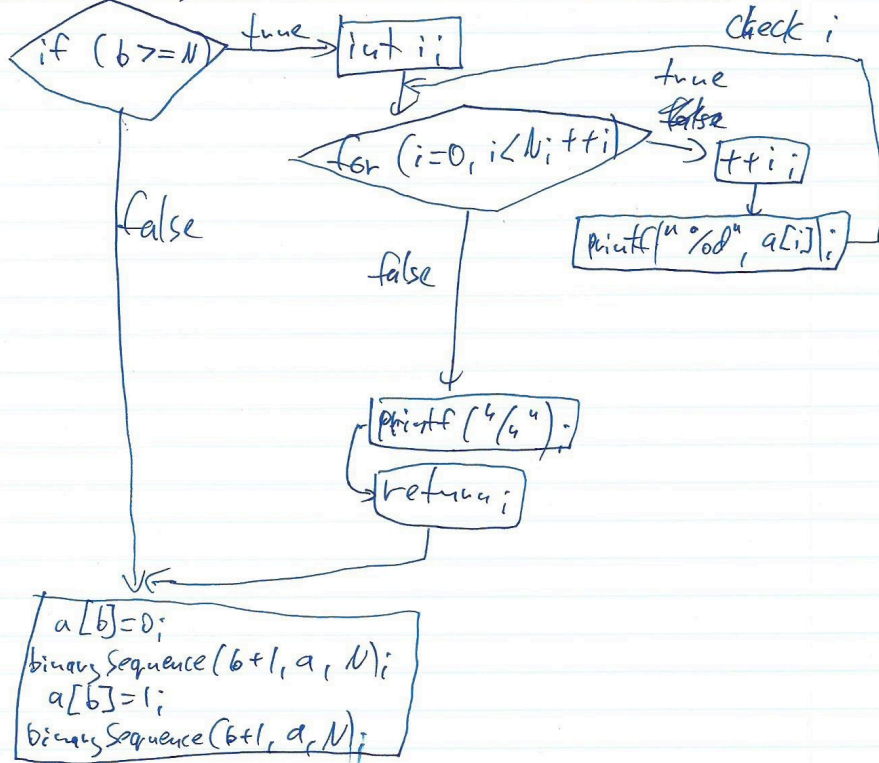 if (b>=N)
true
int i;
check i
true
for (i=0, i<N; ++i)
++i;
printf("%d", a[i]);
false
false
printf("/n");
return;
a[b]=0;
binarySequence(b+1, a, N);
a[b]=1;
binarySequence(b+1, a, N);